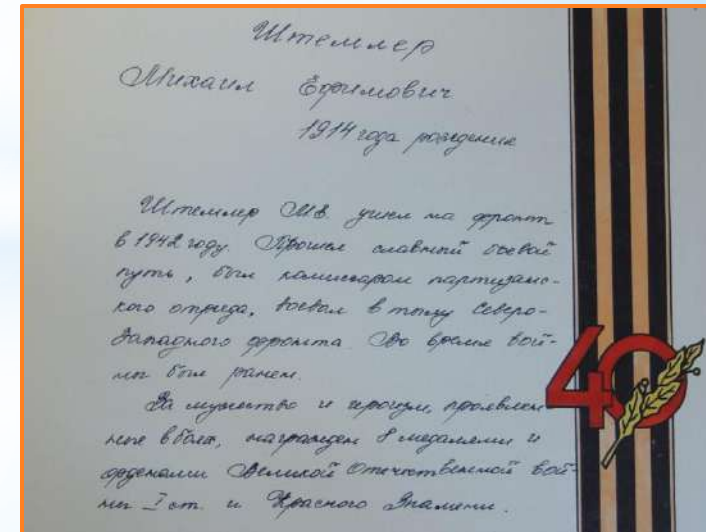 Штемлер
Михаил Ефимович
1914 года рождения
Штемлер М.Е. ушел на фронт
в 1942 году. Прошел славный боевой
путь, был комиссаром партизанс-
кого отряда, воевал в тылу Северо-
Западного фронта. Во время вой-
ны был ранен.
За мужество и героизм, проявлен-
ные в боях, награжден 8 медалями и
орденами Великой Отечественной вой-
ны I ст. и Красного Знамени.
40